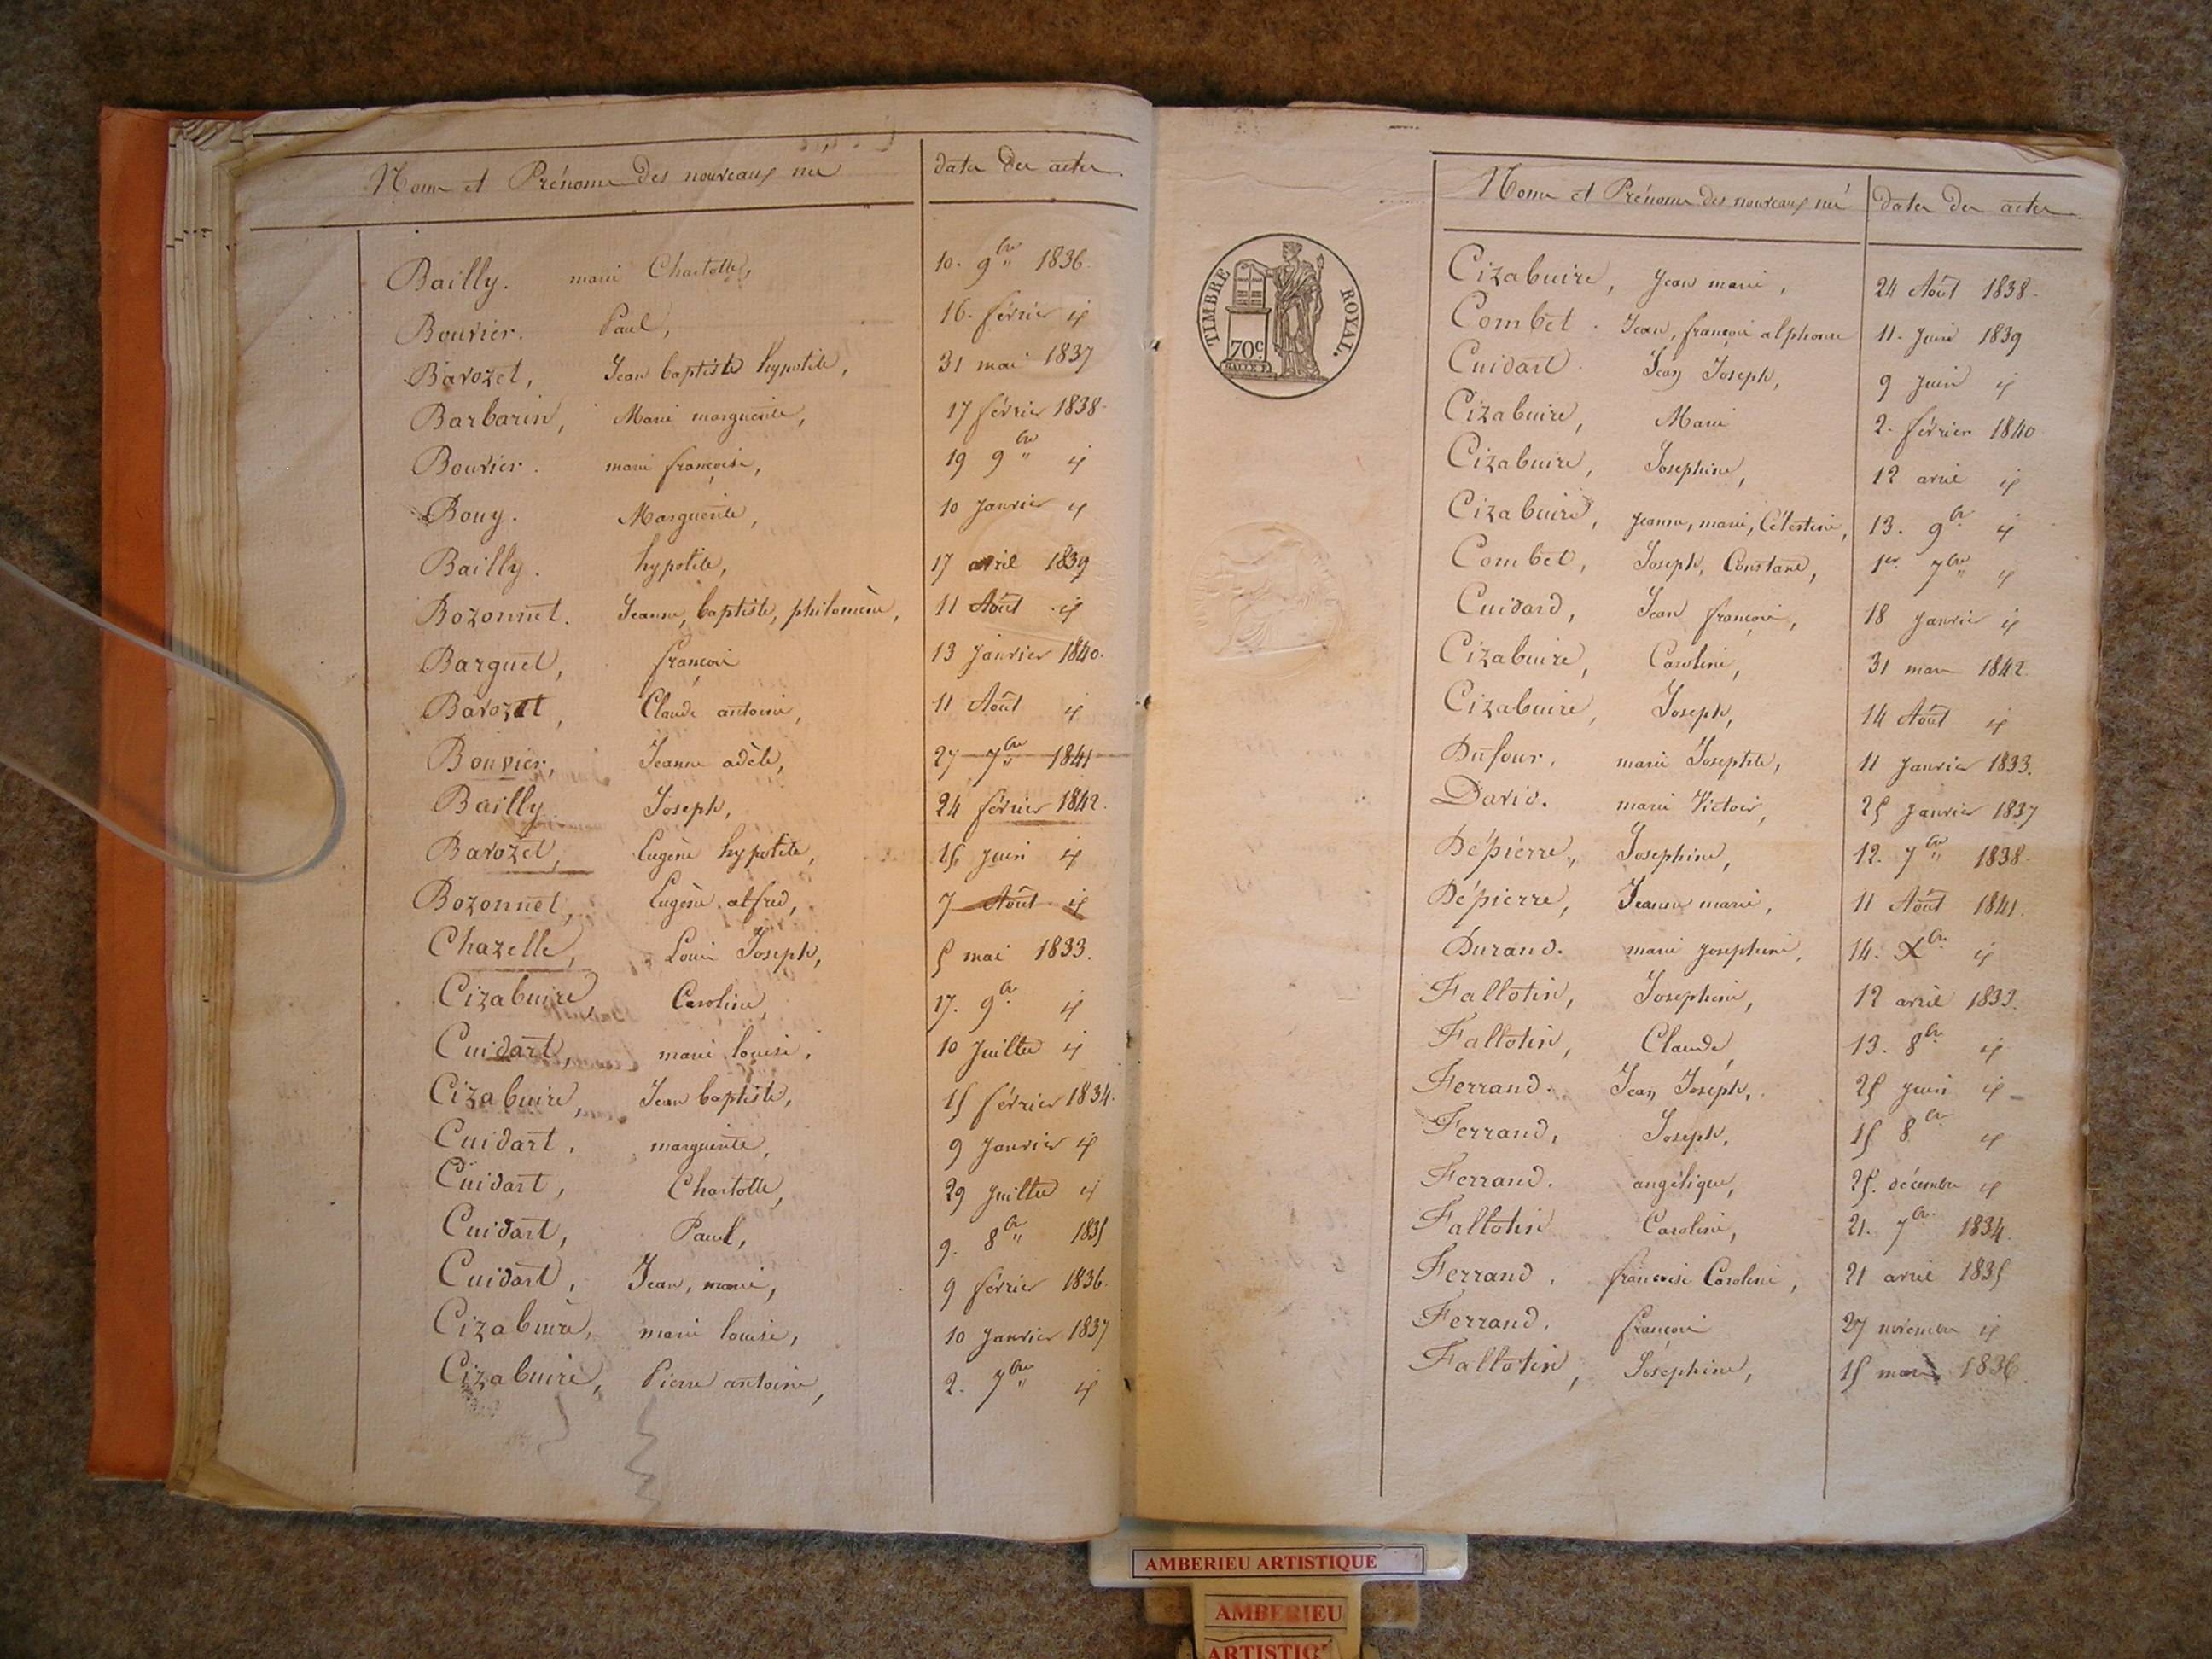 Noms et Prénoms des nouveaux né dates des actes.
Bailly. marie Charlotte, 10. 9bre 1836.
Bouvier. Paul, 16. février id
Bavozet, Jean baptiste hypolite, 31 mai 1837
Barbarin, Marie marguerite, 17 février 1838
Bouvier. marie françoise, 19 9bre id
Bouy. Marguerite, 10 Janvier id
Bailly. hypolite, 17 avril 1839
Bozonnet. Jeanne, baptiste, philomène, 11 Août id
Barguet, françois 13 Janvier 1840.
Bavozet, Claude antoine, 11 Août id
Bouvier, Jeanne adèle, 27 7bre 1841
Bailly Joseph, 24 février 1842.
Bavozet, Eugène hypolite, 15 Juin id
Bozonnet, Eugène alfred, 7 Août id
Chazelle, Louis Joseph, 5 mai 1833.
Cizabuire, Caroline, 17. 9bre id
Cuidart, marie louise, 10 Juillet id
Cizabuire, Jean baptiste, 15 février 1834.
Cuidart, marguerite, 9 Janvier id
Cuidart, Charlotte, 29 Juillet id
Cuidart, Paul, 9. 8bre 1835
Cuidart, Jean, marie, 9 février 1836.
Cizabuire, marie louise, 10 Janvier 1837
Cizabuire, Pierre antoine, 2. 7bre id
TIMBRE ROYAL.
70c.
Noms et Prénoms des nouveaux né dates des actes
Cizabuire, Jean marie, 24 Août 1838.
Combet. Jean, françois alphonse 11. Juin 1839
Cuidart. Jean Joseph, 9 Juin id
Cizabuire, Marie 2. février 1840
Cizabuire, Josephine, 12 avril id
Cizabuire, Jeanne, marie, Célestine, 13. 9bre id
Combet, Joseph, Constant, 1er 7bre id
Cuidard, Jean françois, 18 Janvier id
Cizabuire, Caroline, 31 mars 1842.
Cizabuire, Joseph, 14 Août id
Dufour. marie Josephte, 11 Janvier 1833.
David. marie Victoire, 25 Janvier 1837
Dépierre, Josephine, 12. 7bre 1838.
Dépierre, Jeanne marie, 11 Août 1841.
Durand. marie Josephine, 14. Xbre id
Fallotin, Josephine, 12 avril 1833.
Fallotin, Claude, 13. 8bre id
Ferrand. Jean Joseph, 25 Juin id
Ferrand, Joseph, 15 8bre id
Ferrand. angélique, 25. décembre id
Fallotin Caroline, 21. 7bre 1834.
Ferrand, françoise Caroline, 21 avril 1835
Ferrand, françois 27 novembre id
Fallotin, Joséphine, 15 1836.
AMBERIEU ARTISTIQUE
AMBERIEU
ARTISTIQ